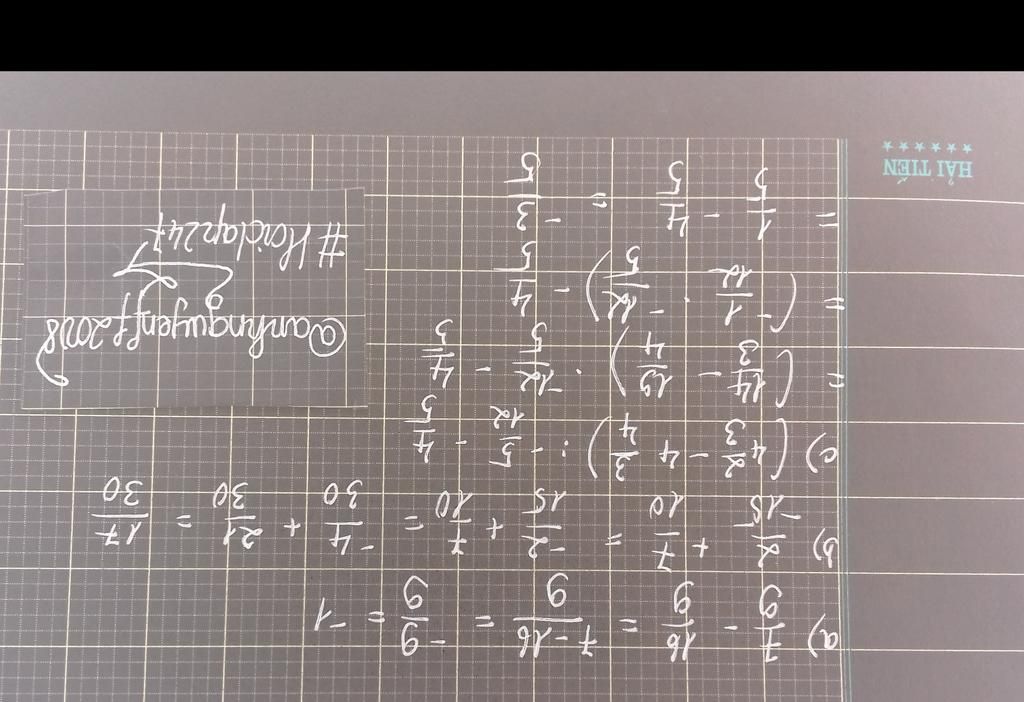 HẢI TIẾN
a) 7/9 - 16/9 = 7-16/9 = -9/9 = -1
b) 2/-15 + 7/10 = -2/15 + 7/10 = -4/30 + 21/30 = 17/30
c) (4 2/3 - 4 3/4) : -5/12 - 4/5
= (14/3 - 19/4) . -12/5 - 4/5
= (-1/12 . -12/5) - 4/5
= 1/5 - 4/5 = -3/5
@anhnguyenff2008
#Hoidap247